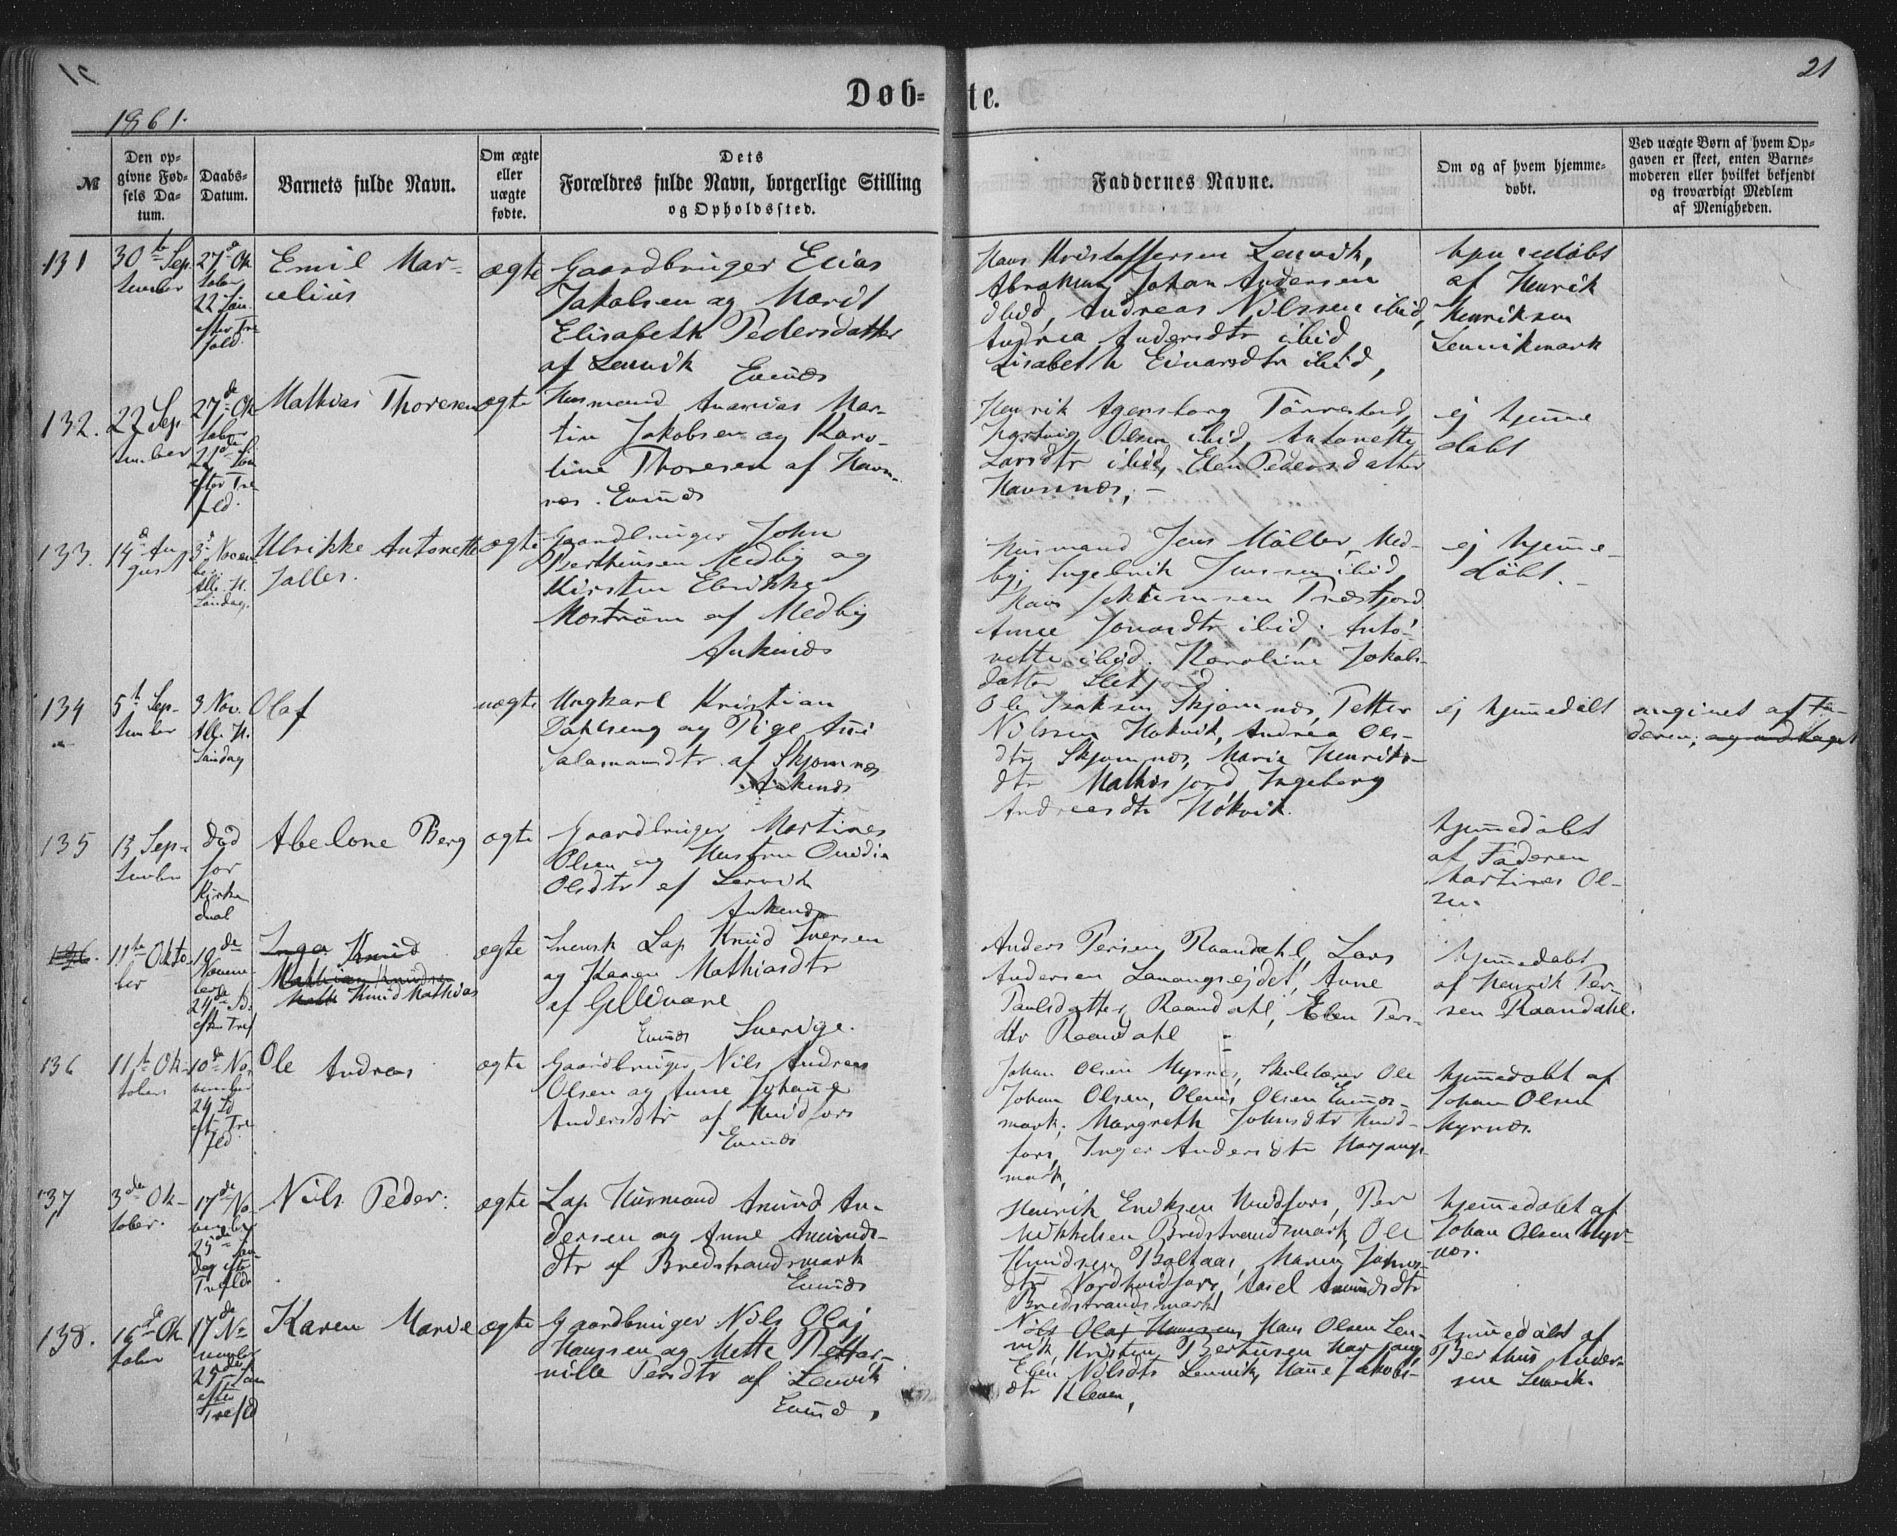 21
1861.
Døb=te.
№
Den op=
givne Fød=
sels Da=
tum.
Daabs=
Datum.
Barnets fulde Navn.
Om ægte
eller
uægte
fødte.
Dets
Forældres fulde Navn, borgerlige Stilling
og Opholdssted.
Faddernes Navne.
Om og af hvem hjemme=
døbt.
Ved uægte Børn af hvem Op=
gaven er skeet, enten Barne=
moderen eller hvilket bekjendt
og troværdigt Medlem
af Menigheden.
131
30te Sep
tember
27de Ok
tober
22 Søn
efter Tre
fold.
Emil Mar-
celius
ægte
Gaardbruger Elias
Jakobsen og Marit
Elisabeth Pedersdatter
af Lenvik
Evenæs
Hans Kristoffersen Lenvik,
Abraham Johan Andersen
ibid, Andreas Nilssen ibid,
Andrea Andersdtr ibid
Lisabeth Einarsdtr ibid,
af Henrik
Henriksen
Lenvikmark
132.
22 Sep
tember
27de Ok
tober
22de Søn
efter Tre
fld.
Mathias Thoresen
ægte
Husmand Ananias Mar-
tin Jakobsen og Karo-
line Thoresen af Havn-
næs. Evenæs
Henrik Agersborg Tårrestad,
Hartvig Olsen ibid, Antonette
Larsdtr ibid, Elen Pedersdatter
Havnnæs, -
ej hjemme
døbt
133.
14de Au
gust
3de Novem
ber
Alle H.
Søndag.
Ulrikke Antonette
Jalles.
ægte
Gaardbruger John
Berthinsen Medby og
Kirsten Elrikke
Mostrøm af Medby
Ankenæs
Husmand Jens Møller Med-
by; Ingebrik Jenssen ibid,
Hans
Anne Jonasdtr ibid; Anto-
nette ibid. Karoline Jakobs-
datter
ej hjemme-
døbt. -
134
5te Sep-
tember
3 Nov.
Alle H.
Søndag
Olaf
uægte
Ungkarl Kristian
Dahlseng og Pige Ani
Salamonsdtr af Skjomnæs
Ankenæs
Ole Isaksen Skjomnæs, Petter
Nilssen Håkvik, Andrea Ols-
dtr Skjomnæs, Marie Henriks-
dtr Mathisjord Ingeborg
Andreasdtr Håkvik.
ej hjemmedøbt
angivet af Fa-
deren; og modtaget
135
13 Sep-
tember
Død
for
Kirke
daab
Abelone Berg
ægte
Gaardbruger Martines
Olsen og Hustru Ovedia
Olsdtr af Lenvik
Ankenæs
hjemmedøbt
af Faderen
Martines Ol-
sen.
136.
11te Okto-
ber
10de
Novem-
ber
24de S.
efter Tref
Inga Knud
Mathias Knudsen
Math Knud Mathias
ægte
Svensk Lap Knud Iversen
og Karen Mathiasdtr
af Gellivare
Evenæs Sverige.
Anders Persen Raandahl, Lars
Andersen Lavangsejdet, Anne
Paulsdatter Raandahl, Elen Pers-
dtr Raandahl
hjemmedøbt
af Henrik Per-
sen Raandahl.
136
11te Ok-
tober
10de No-
vember
24 S.
eftr Tre
fld.
Ole Andreas
ægte
Gaardbruger Nils Andreas
Olsen og Anne Johanna
Andersdtr af Hvidfors
Evenæs
Johan Olsen Myrnes, Skolelærer Ole
Johan Olsen, Olenus Olsen Evenæs-
mark; Margreth Johnsdtr Hvid-
fors, Inger Andersdtr Harjangs-
mark,
hjemmedøbt af
Johan Olsen
Myrnæs.
137
3de Ok-
tober.
17de No-
vember
25de Søn-
dag eftr
Trefld.
Nils Peder.
ægte
Lap Husmand Amund An-
dersen og Anne Amunds-
dtr af Bredstrandsmark
Evenæs
Henrik Eriksen Hvidfors, Per
Mikkelsen Bredstrandsmark, Ole
Knudsen Boltaas, Maren Johns-
dtr Nordhvidfors, Amundsdtr
Bredstrandsmark
hjemmedøbt af
Johan Olsen Myr-
næs.
138.
16de Ok
tober
17de No
vember
25de Søn
efter
Trefld
Karen Marie
ægte
Gaardbruger Nils Olaj
Hanssen og Mette Petter-
nille Persdtr af Lenvik
Evenæs,
Nils Olaj Hanssen, Hans Olsen Len-
vik, Kristen Berthinsen Harjang
Elen Nilsdtr Lenvik, Hane Jakobs-
dtr Kleven,
hjemmedøbt af
Berthus Ander-
sen Lenvik.